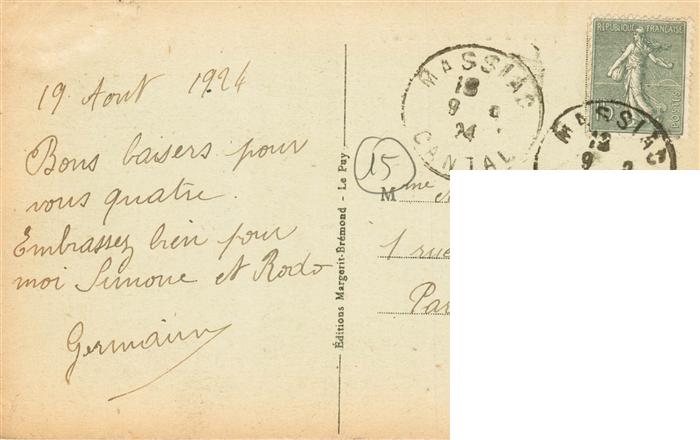 19 Aout 1924
Bons baisers pour
vous quatre.
Embrassez bien pour
moi Simone et Rodo
Germaine
Éditions Margerit-Brémond - Le Puy
15
MASSIAC
CANTAL
24
REPUBLIQUE FRANÇAISE
POSTES
MASSIAC
M me
1 rue